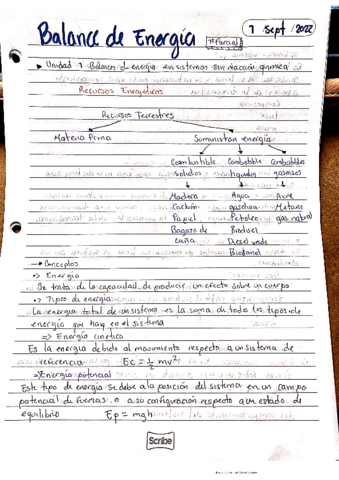 Balance de Energía
1er Parcial
1 Sept / 2022
Unidad 1 Balances de energía en sistemas sin reacción química
Recursos Energéticos
Recursos Terrestres
Materia Prima Suministran energía
Combustible Combustible Combustibles
solidos liquidos gaseosos
Madera Agua Aire
Carbón gasolina Metano
Papel Petoleo gas natural
Bagazo de Biodiesel
caña Diesel verde
Bioetanol
→ Conceptos
→ Energía
Se trata de la capacidad de producir un efecto sobre un cuerpo
→ Tipos de energía
La energía total de un sistema es la suma de todos los tipos de
energía que hay en el sistema
⇒ Energía cinetica
Es la energía debido al movimiento respecto a un sistema de
referencia Ec = 1/2 mv²
⇒ Energía potencial
Este tipo de energía se debe a la posición del sistema en un campo
potencial de fuerzas, o a su configuración respecto a un estado de
equilibrio Ep = mgh
Scribe